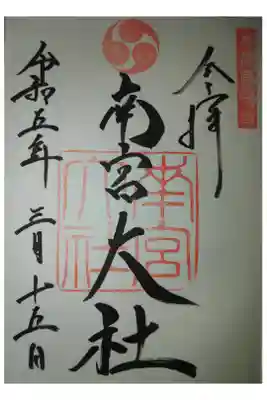 奉拝
南宮大社
南宮
大社
令和五年 三月十五日